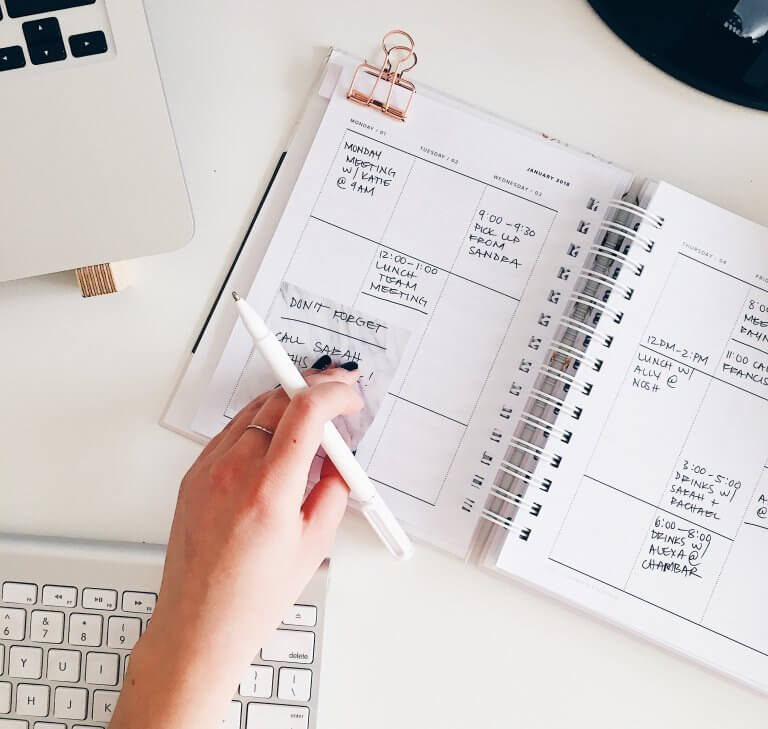 JANUARY 2018
MONDAY / 01
MONDAY
MEETING
W/ KATIE
@ 9AM
TUESDAY / 02
12:00-1:00
LUNCH
TEAM
MEETING
WEDNESDAY / 03
9:00-9:30
PICK UP
FROM
SANDRA
DON'T FORGET
CALL SARAH
!
THURSDAY / 04
12PM-2PM
LUNCH W/
ALLY @
NOSH
3:00-5:00
DRINKS W/
SARAH +
RACHAEL
6:00-8:00
DRINKS W/
ALEXA @
CHAMBAR
11:00
@
F6
F7
F8
F9
6
&
7
*
8
(
9
delete
Y
U
I
{
[
}
]
H
J
K
enter